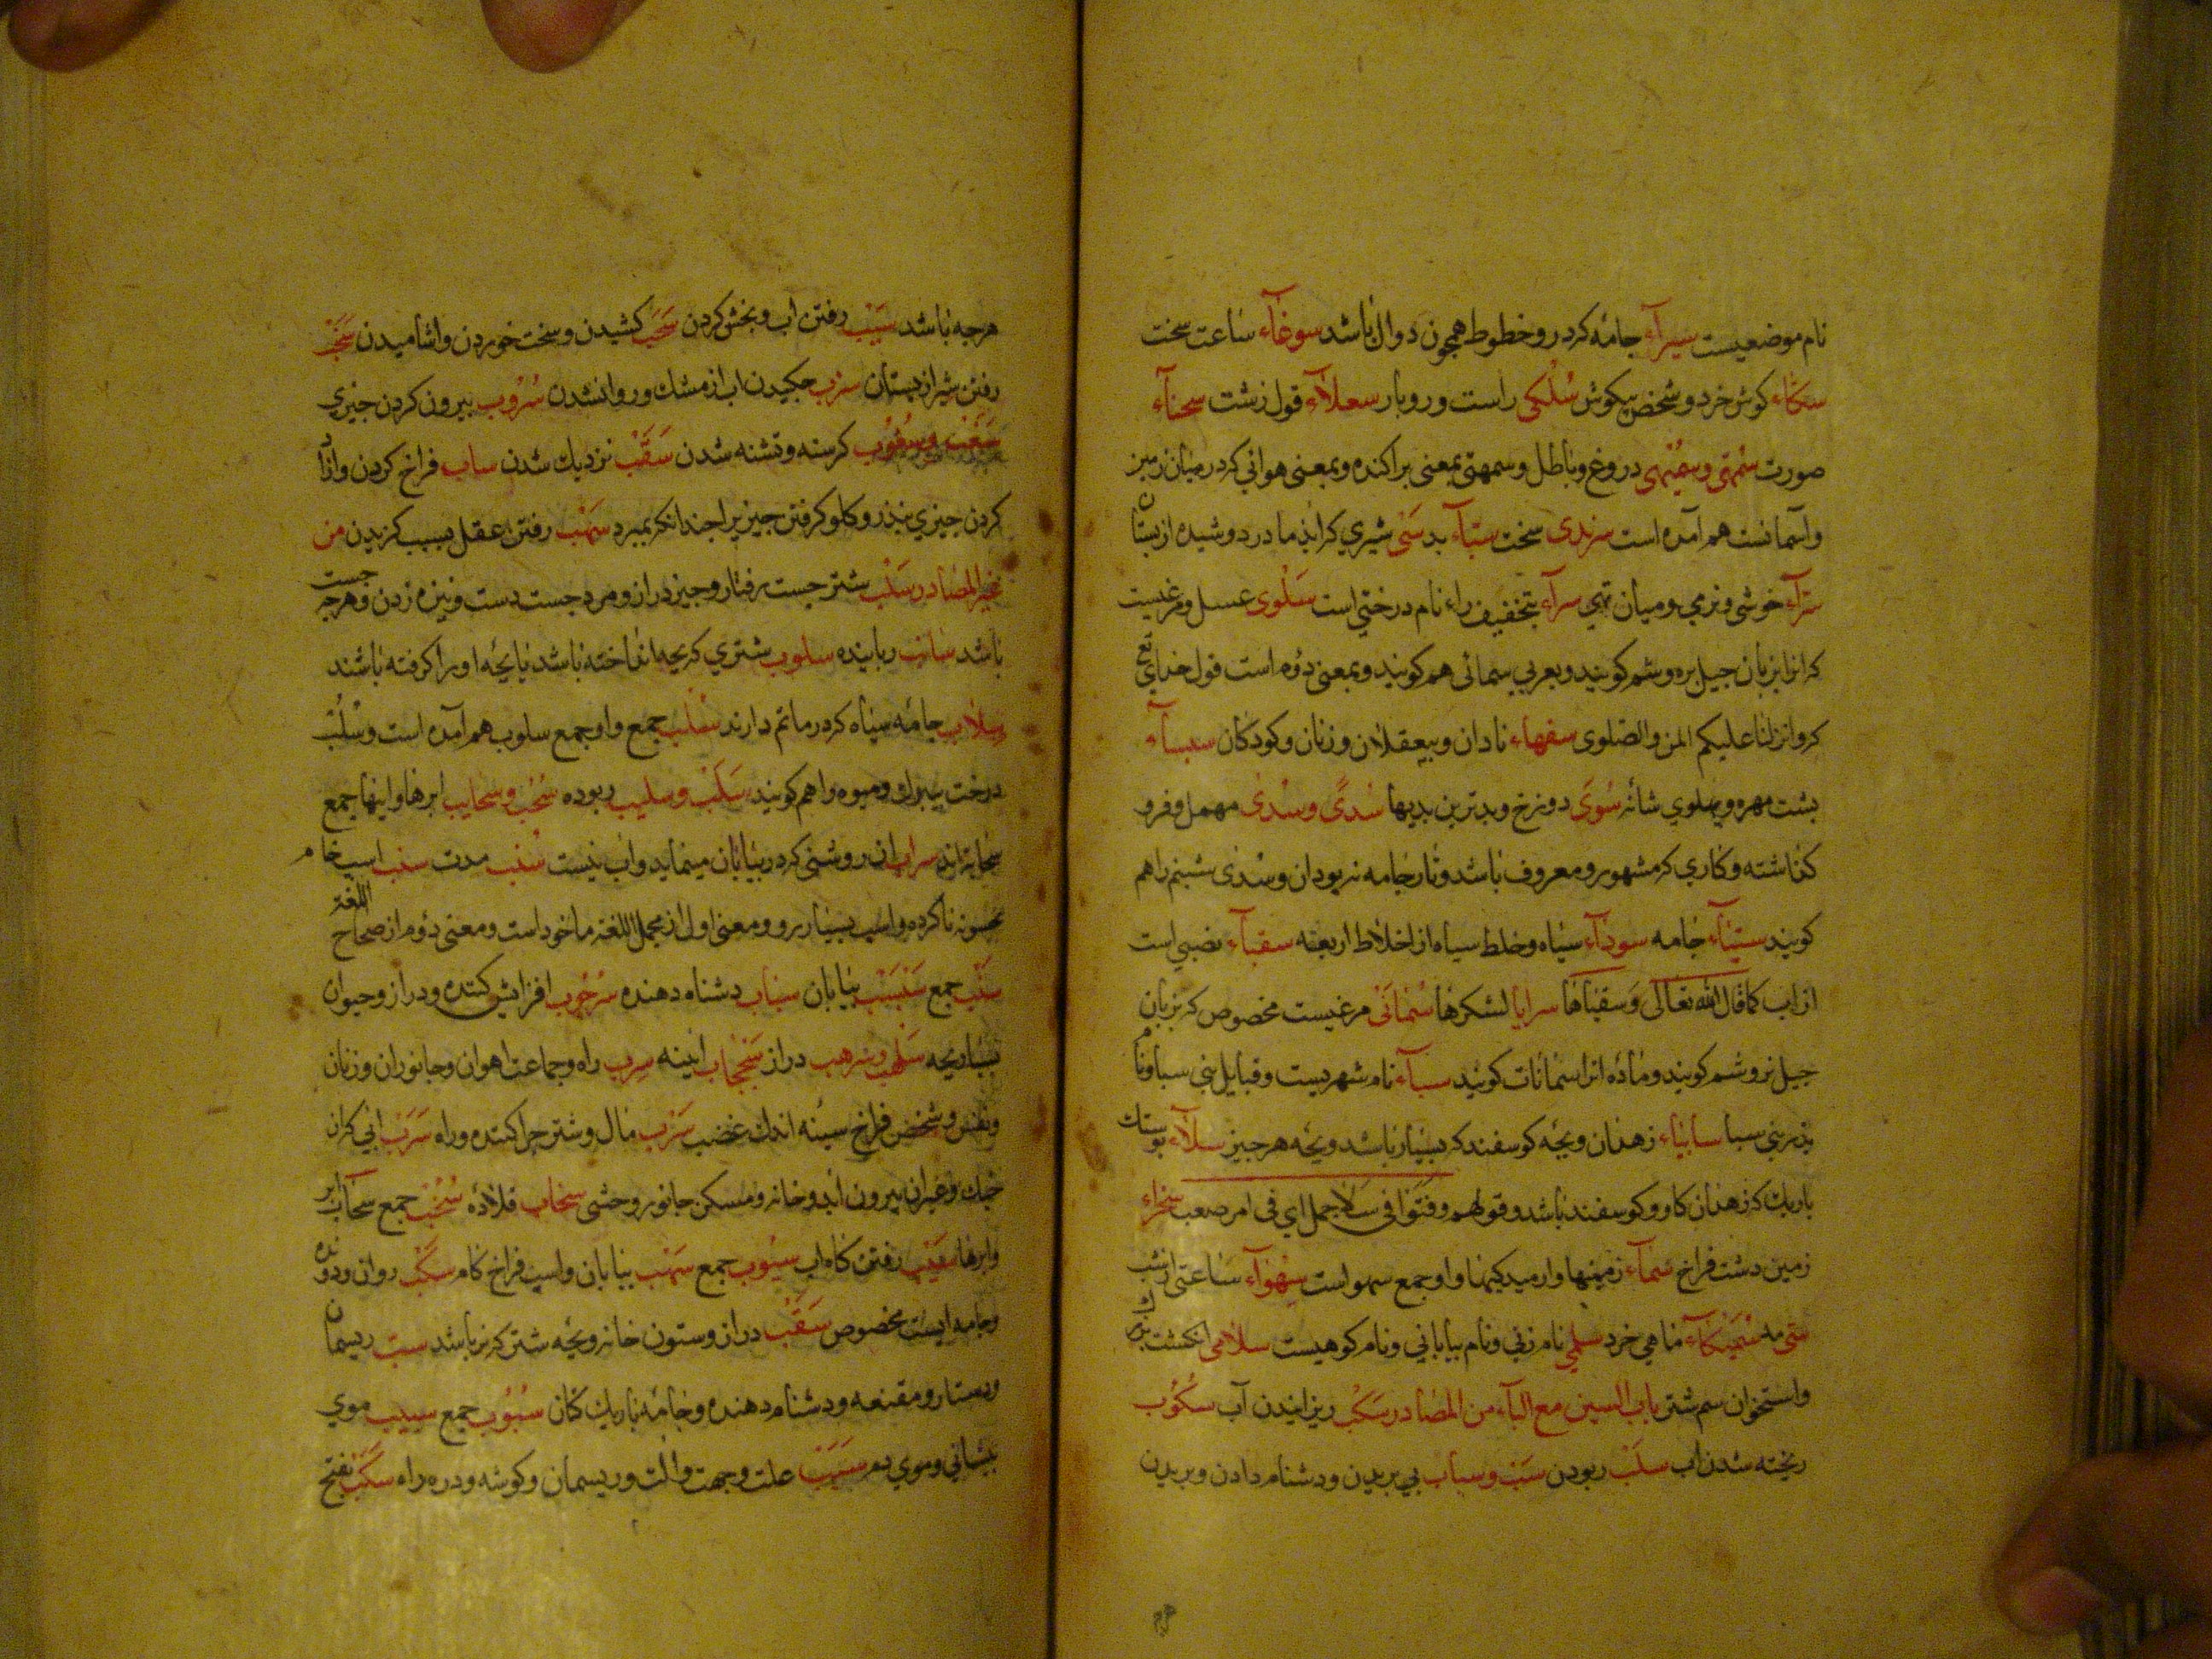 نام موضعیست سیرآء جامۀ که در و خطوط همچون دوال باشد سوغآء ساعت سخت
سکّاء کوش خرد و شخص بیکوش سُلْکی راست و روبار سعلآء قول زشت سحنآء
صورت سُمّهی و سُمَیْهی دروغ و باطل و سمهی بمعنی براکنده و بمعنی هوائی که در میان زمین
و آسمانست هم آمده است سرندی سخت سبآء بد سَیّ شیری که از بی مادر دوشیده از بستان
سرّآء خوشی و نرمی و میان تهی سرآء بتخفیف راء نام درختی است سَلْوی عسل و مرغیست
که انرا بزبان جیل بره وشم کویند و بعربی سمانی هم کویند و بمعنی دوم است قول خدای تع
که و انزلنا علیکم المن و الصلوی سفهاء نادان و بیعقلان و زنان و کودکان سیسآء
بشت مهره و بهلوی شانه سُوَی دوزخ و بدترین بدیها سُدًی و سُدی مهمل و فرو
کذاشته و کاری که مشهور و معروف باشد و تار جامه نه بود ان و سُدی شبنم را هم
کویند سبنآء جامه سودآء سیاه و خلط سیاه از اخلاط اربعه سقیآء نصیبی است
از اب کما قال الله تعالی وَسقیاها سرایا لشکرها سُمانَی مرغیست مخصوص که بزبان
جیل نر وشم کویند و مادۀ انرا سمانات کویند سبآء نام شهریست و قبایل بنی سبا و نام
بدر بنی سبا سابیاء زهدان و بچۀ کوسفند که بسیار باشد و بچۀ هر جیز سلآء بوستک
باریک که زهدان کاو و کوسفند باشد و قولهم وقَعَوا فی سَلا جمل ای فی امر صعب سخرآء
زمین دشت فراخ سمآء زمینها و ارمیدکیها و او جمع سهو است سِهْوآء ساعتی از شب
سَی مه سُمَیْکآء ماهی خرد سلمی نام زنی و نام بیابانی و نام کوهیست سلامی انکشت بزرک
و استخوان سم شتر باب السین مع البآء من المصادر سَکْب ریزانیدن آب سُکُوب
ریخته شدن اب سلَب ربودن سَبّ و سباب بی بریدن و دشنام دادن و بریدن
هرجه باشد سَیْب رفتن اب و بخش کردن سَحَب کشیدن و سخت خوردن و اشامیدن سَخْب
رفتن شیر از بستان سرَب جکیدن اب از مشک و روانشدن سُرُوب بیرون کردن جیزی
سَغَب و سُغُوب کرسنه و تشنه شدن سَقَب نزدیک شدن ساب فراخ کردن و ازاد
کردن جیزی بنذر و کلو کرفتن جیزیرا جندانکه بمیرد سَهَب رفتن عقل بسبب کزیدن من
غیر المصادر سَلْب شتر جست رفتار و جیز دراز و مرد جست دست و نیزه زدن و هرجه جست
باشد سالب رباینده سلوب شتری که بچه انداخته باشد یا بچۀ او را کرفته باشند
سِلاب جامۀ سیاه که در ماتم دارند سُلُب جمع و او جمع سلوب هم آمده است و سُلُب
درخت بی برک و میوه را هم کویند سَلَب و سلیب ربوده سُحُب و سحایب ابرها و اینها جمع
سحابه اند سراب ان روشنی که در بیابان مینماید و اب نیست سَنْب مدت سنب اسب خام
نحسونه ناکرده و اسب بسیار رو و معنی اول از مجمل اللغه ماخوذ است و معنی دوم از صحاح اللغة
سَبْب جمع سَبْسَبْ بیابان سباب دشنام دهنده سُرْحُوب افزایش کننده و دراز و حیوان
بسیار بچه سَلْهب و سرهب دراز سَنْجاب اینه سِرب راه و جماعت اهوان و جانوران و زنان
و نفس و شخص فراخ سینه اندک غضب سَرْب مال و شتر جرا کننده و راه سَرَب ابی که از
خیک و غیر ان بیرون اید و خانه و مسکن جانور وحشی سخاب قلادۀ سُحُب جمع سحاب ابر
و ابرها سَیْب رفتن کاه اب سیُوب جمع سَهْب بیابان و اسب فراخ کام سَکْب روان و دونده
و جامه ایست مخصوص سَقْب دراز و ستون خانه و بچۀ شتر که نر باشد سب ریسمان
و دستار و مقنعه و دشنام دهنده و جامۀ باریک کتان سُبُوب جمع سبیب موی
بیشانی و موی دم سَبَبْ علت و جهت و الت و ریسمان و کوشه و دره راه سَکَبْ بفتح